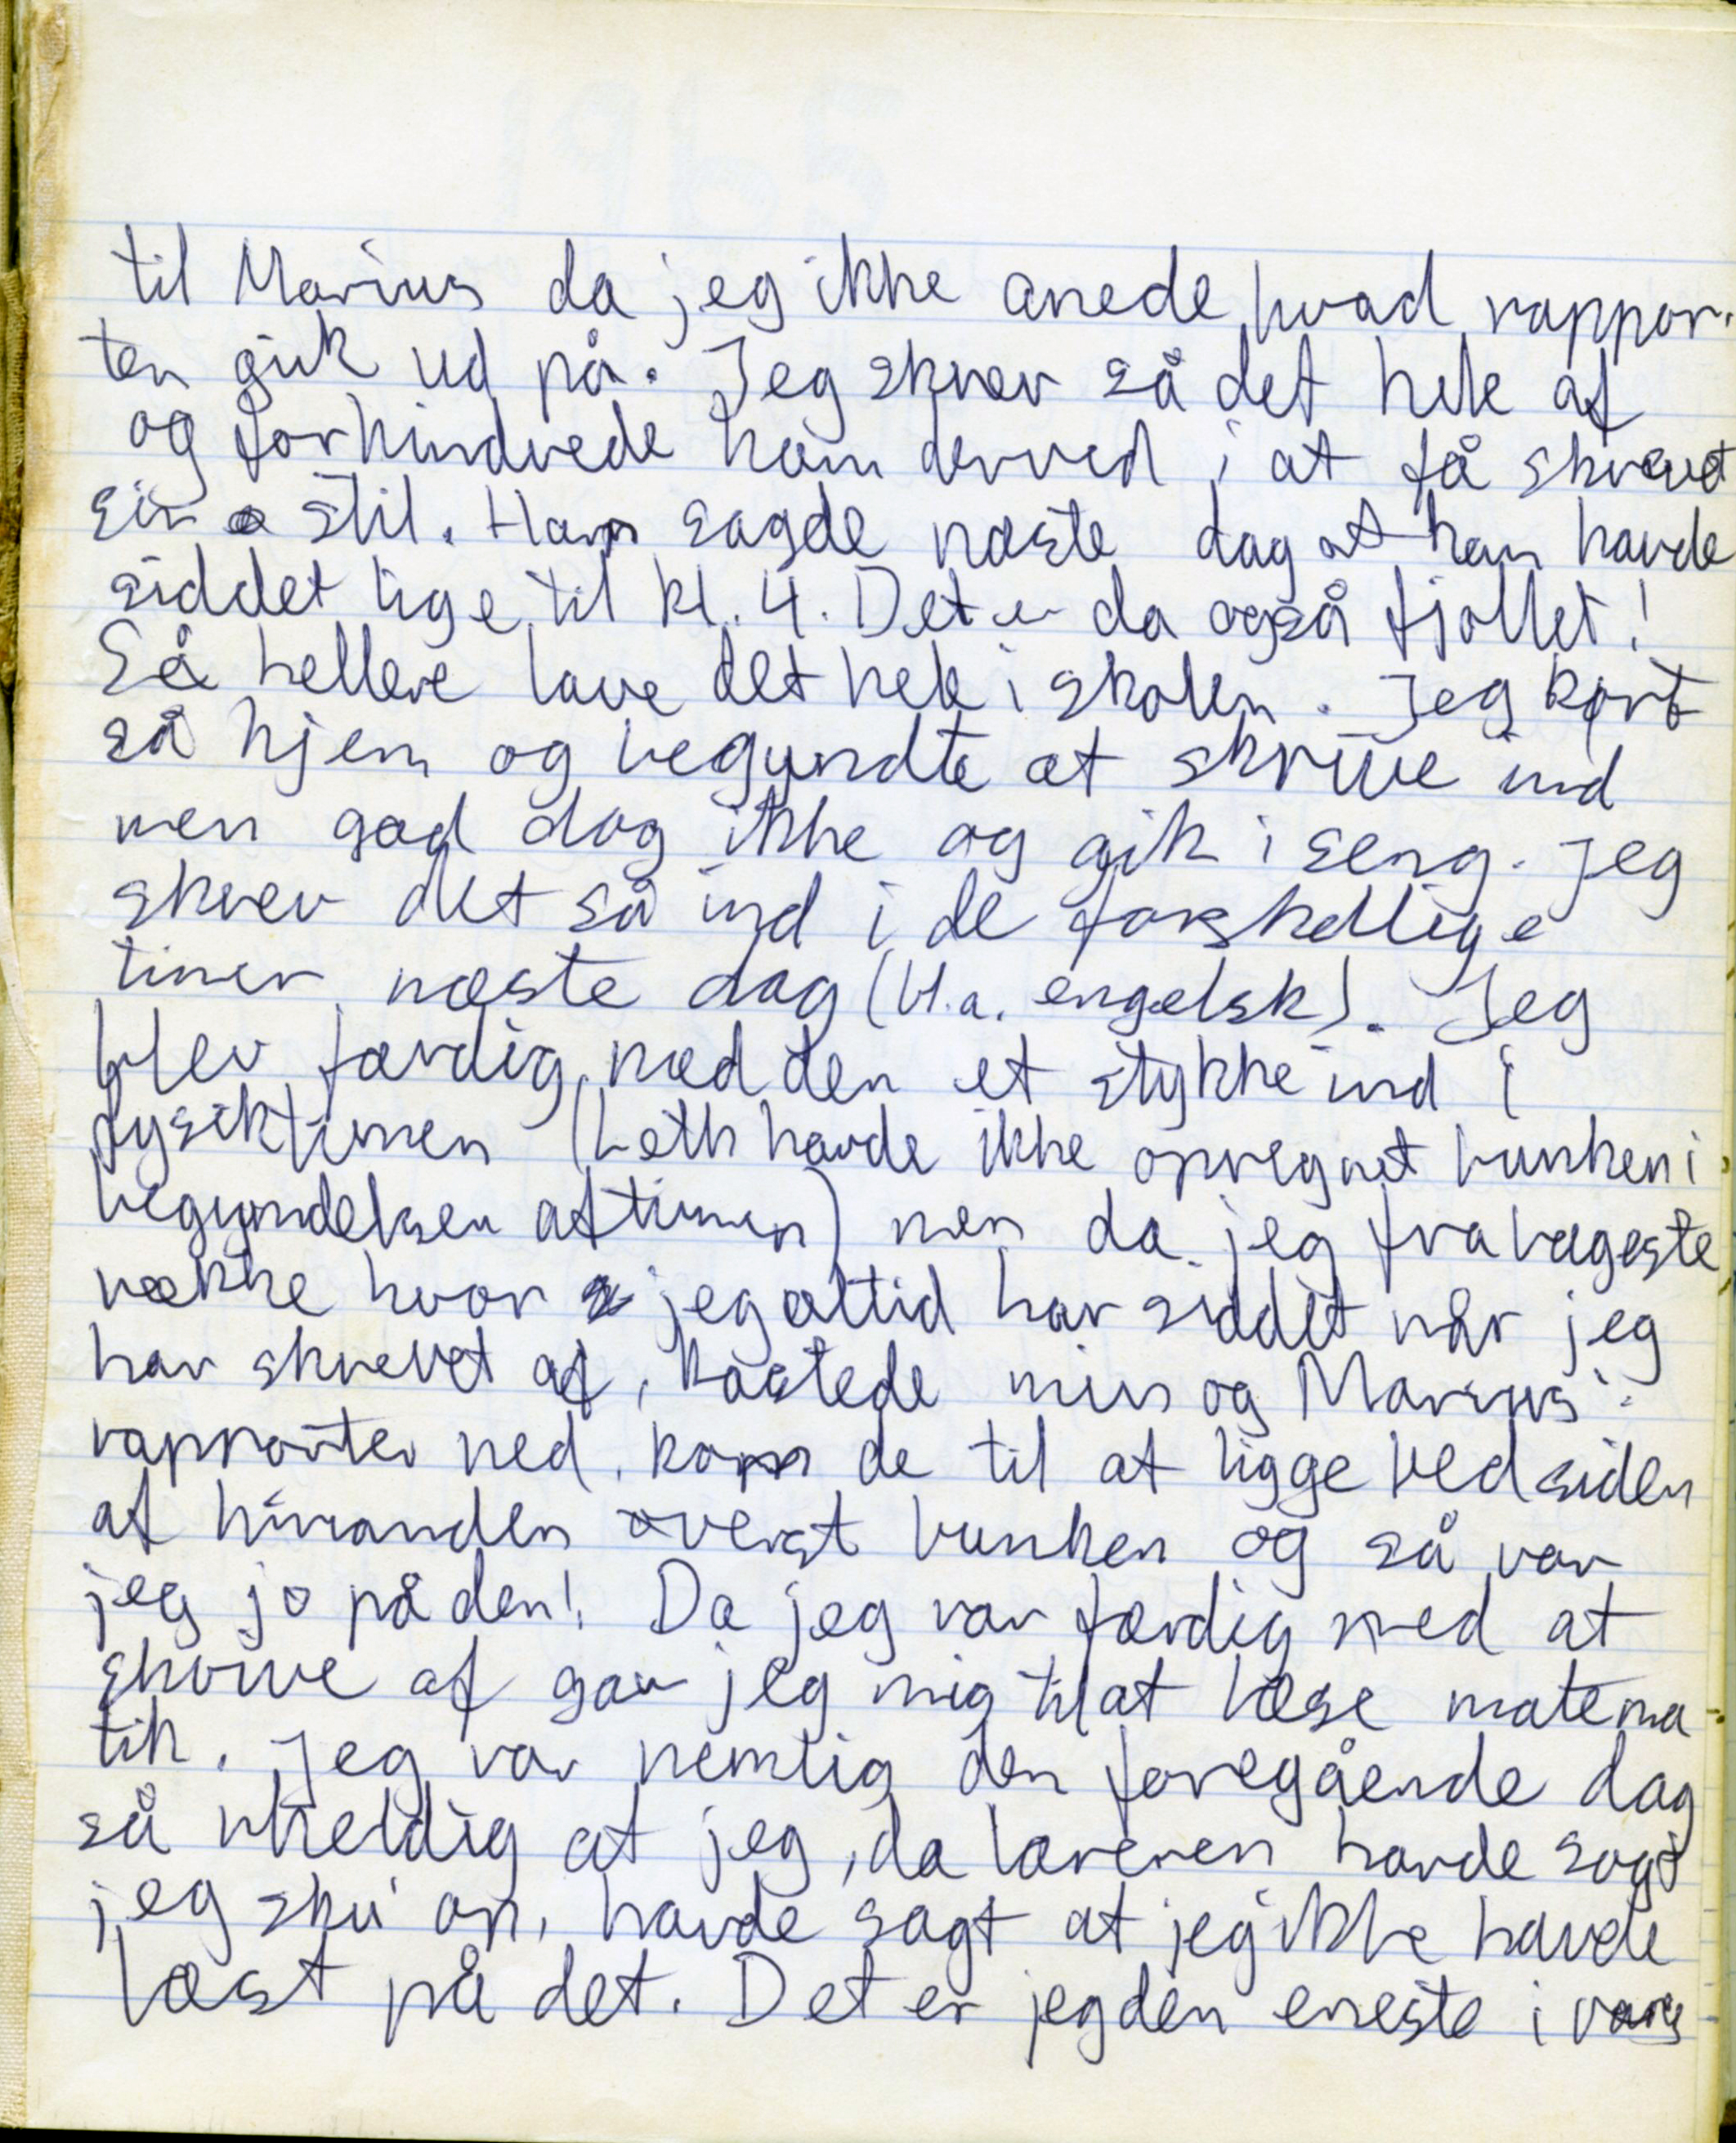 til Marius da jeg ikke anede hvad rappor-
ten gik ud på. Jeg skrev så det hele af
og forhindrede ham derved i at få skrevet
sin stil. Han sagde næste dag at han havde
siddet lige til kl. 4. Det er da også fjollet!
Så hellere lave det hele i skolen. Jeg kørt
så hjem og begyndte at skrive ind
men gad dog ikke og gik i seng. Jeg
skrev det så ind i de forskellige
timer næste dag (bl.a. engelsk). Jeg
blev færdig med den et stykke ind i
fysiktimen (Leth havde ikke opregnet bunken i
begyndelsen af timen) men da jeg fra bageste
række hvor jeg altid har siddet når jeg
har skrevet af, kastede min og Marius'
rapporter ned, kom de til at ligge ved siden
af hinanden øverst bunken og så var
jeg jo på den! Da jeg var færdig med at
skrive af gav jeg mig til at læse matema
tik. Jeg var nemlig den foregående dag
så uheldig at jeg, da læreren havde sagt
jeg sku' op, havde sagt at jeg ikke havde
læst på det. Det er jeg den eneste i vores